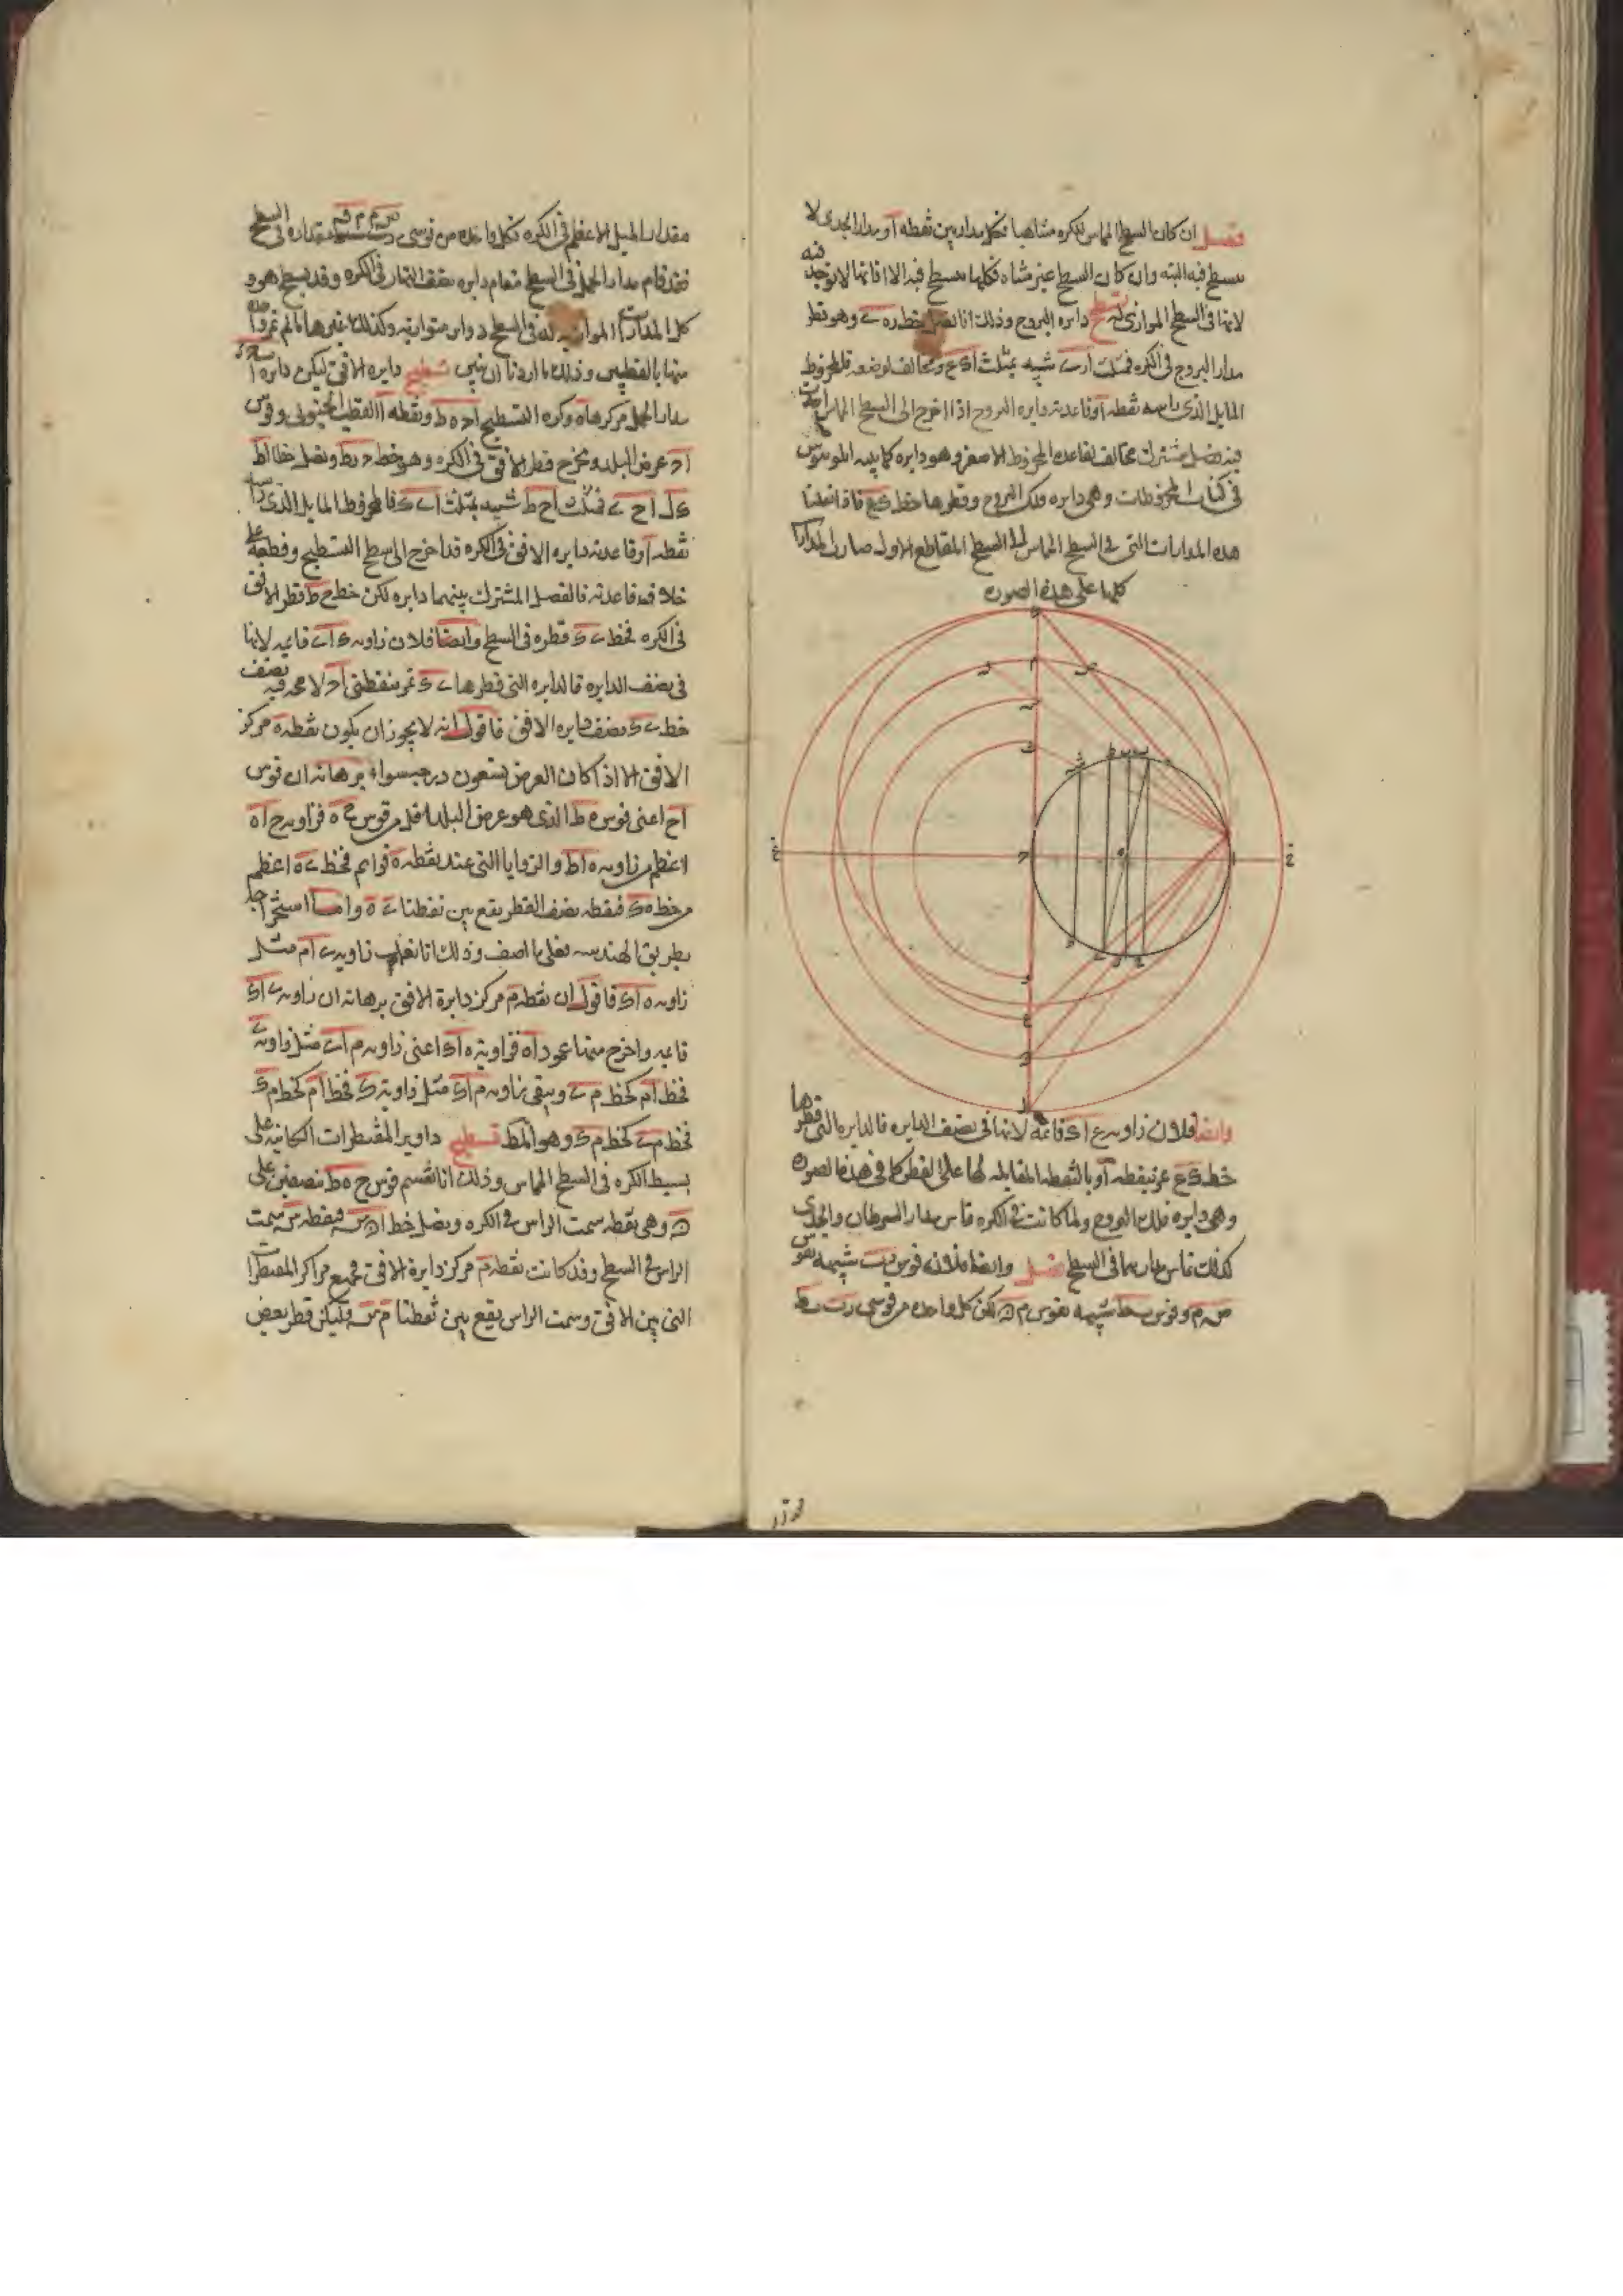 فصل ان كان السطح المماس للكره متناهيا فكل مدار بين نقطه آ ومدار الجدى لا
يسطح فيه البته وان كان السطح غير متناه فكلها مسطح فيه الا آ فانها لا توجد فيه
لانها فى السطح الموازى له تسطيح دايره البروج وذلك انا نصل خط ره ے وهو قطر
مدار البروج فى الكره فمثلث ا ر ے شبيه بمثلث ا ك ع ومخالف لوضعه فلمخروط
المايل الذى راسه نقطه آ وقاعدته دايره البروج اذا اخرج الى السطح المماس
فصل مشترك مخالف لقاعده المخروط الاصغر وهو دايره كما بينه ابلونيوس
فى كتاب المخروطات وهى دايره فلك البروج وقطرها خط ك ع فاذا نقلنا
هذه المدارات التى فى السطح المماس الى السطح المقاطع الاول صارت المدارات
كلها على هذه الصوره
وايضا فلان زاويه ع ا ك قائمه لانها فى نصف الدايره فالدايره التى قطرها
خط ك ع تمر بنقطه آ وبالنقطه المقابله لها على القطر كما فى هذه الصوره
وهى دايره فلك البروج ولما كانت فى الكره تماس مدار السرطان والجدى
كذلك تماس مداريهما فى السطح فصل وايضا فلان قوس ب ت شبيهه بقوس
ص م وقوس ب ط شبيهه بقوس م ق لكن كل واحده من قوسى ر ت ب ط
مقدار الميل الاعظم فى الكره فكل واحده من قوسى ص م م ق مقداره فى السطح
فقد قام مدار الحمل فى السطح مقام دايره نصف النهار فى الكره وقد يسطح هو و
كل المدارات الموازيه له فى السطح دواير متوازيه وكذلك غيرها ما لم تمر واحده
منها بالقطبين وذلك ما اردنا ان نبين تسطيح دايره الافق ليكن دايره
مدار الحمل مركزها ه وكره التسطيح ا ح ه ط ونقطه آ القطب الجنوبى وقوس
ا ح عرض البلد ونخرج قطر الافق فى الكره وهو خط ح ه ط ونصل خطا ا ط
ك ا ح ے فمثلث ا ح ط شبيه بمثلث ا ے ك فالمخروط المايل الذى راسه
نقطه آ وقاعدته دايره الافق فى الكره قد اخرج الى سطح التسطيح وقطعه على
خلاف قاعدته فالفصل المشترك بينهما دايره لكن خط ح ط قطر الافق
فى الكره فخط ے ك قطره فى السطح وايضا فلان زاويه ك ا ے قايمه لانها
فى نصف الدايره فالدايره التى قطرها ے ك تمر بنقطتى ا ح لا محه فيه نصف
خط ے ك نصف دايره الافق فاقول انه لا يجوز ان يكون نقطه ه مركز
الافق الا اذا كان العرض تسعون درجه سواء برهانه ان قوس
ا ح اعنى قوس ه ط الذى هو عرض البلد اقل من قوس ح ه فزاويه ح ا ه
اعظم من زاويه ه ا ط والزوايا التى عند نقطه ه قوايم فخط ے ه اعظم
من خط ه ك فنقطه نصف القطر يقع بين نقطتا ے ه واما استخراجه
بطريق الهندسه فعلى ما اصف وذلك انا نعمل زاويه ے ا م مثل
زاويه ه ا ك فاقول ان نقطه م مركز دايره الافق برهانه ان زاويه ے ا ك
قايمه واخرج منها عمود ا ه فزاويه ه ا ك اعنى زاويه م ا ے مثل زاويه ے
فخط ا م كخط م ے ويبقى زاويه م ا ك مثل زاويه ك فخط ا م كخط م ك
فخط م ے كخط م ك وهو المط تسطيح دواير المقنطرات الكائنه على
بسيط الكره فى السطح المماس وذلك انا نقسم قوس ح ه ط نصفين على
ق وهى نقطه سمت الراس فى الكره ونصل خط ا ق س فنقطه س سمت
الراس فى السطح وقد كانت نقطه م مركز دايره الافق فجميع مراكز المقنطرات
التى بين الافق وسمت الراس يقع بين نقطتا م س فليكن قطر بعض